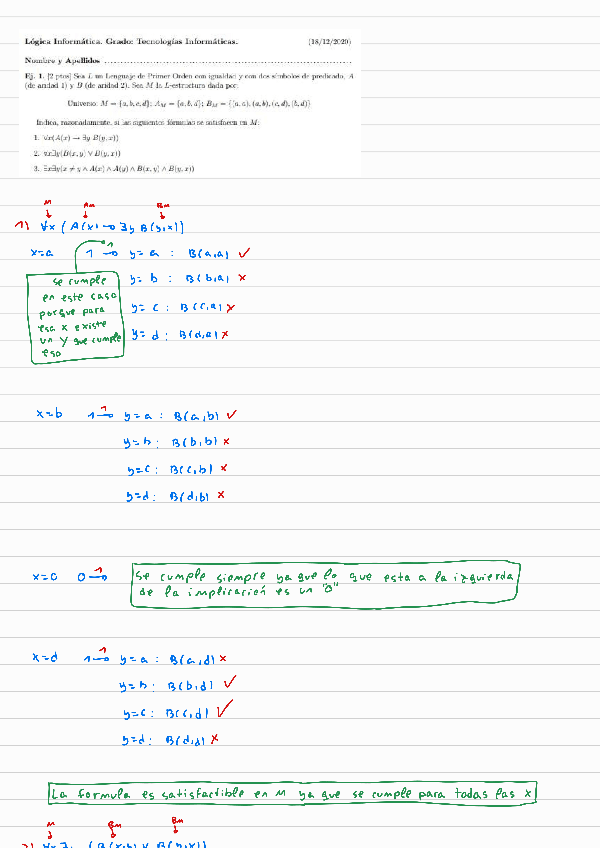 Lógica Informática. Grado: Tecnologías Informáticas. (18/12/2020)
Nombre y Apellidos
Ej. 1. [2 ptos] Sea L un Lenguaje de Primer Orden con igualdad y con dos símbolos de predicado, A
(de aridad 1) y B (de aridad 2). Sea M la L-estructura dada por:
Universo: M = {a, b, c, d}; A_M = {a, b, d}; B_M = {(a, a), (a, b), (c, d), (b, d)}
Indica, razonadamente, si las siguientes fórmulas se satisfacen en M:
1. ∀x(A(x) → ∃y B(y, x))
2. ∀x∃y(B(x, y) ∨ B(y, x))
3. ∃x∃y(x ≠ y ∧ A(x) ∧ A(y) ∧ B(x, y) ∧ B(y, x))
M AM BM
1) ∀x (A(x) → ∃y B(y,x))
x=a 1 →1 y=a : B(a,a) ✓
y=b : B(b,a) x
y=c : B(c,a) x
y=d : B(d,a) x
se cumple
en este caso
porque para
esa x existe
un y que cumple
eso
x=b 1 →1 y=a : B(a,b) ✓
y=b : B(b,b) x
y=c : B(c,b) x
y=d : B(d,b) x
x=c 0 →1 Se cumple siempre ya que lo que esta a la izquierda
de la implicación es un "0"
x=d 1 →1 y=a : B(a,d) x
y=b : B(b,d) ✓
y=c : B(c,d) ✓
y=d : B(d,d) x
La formula es satisfactible en M ya que se cumple para todas las x
M BM BM
2) ∀x ∃y (B(x,y) ∨ B(y,x))